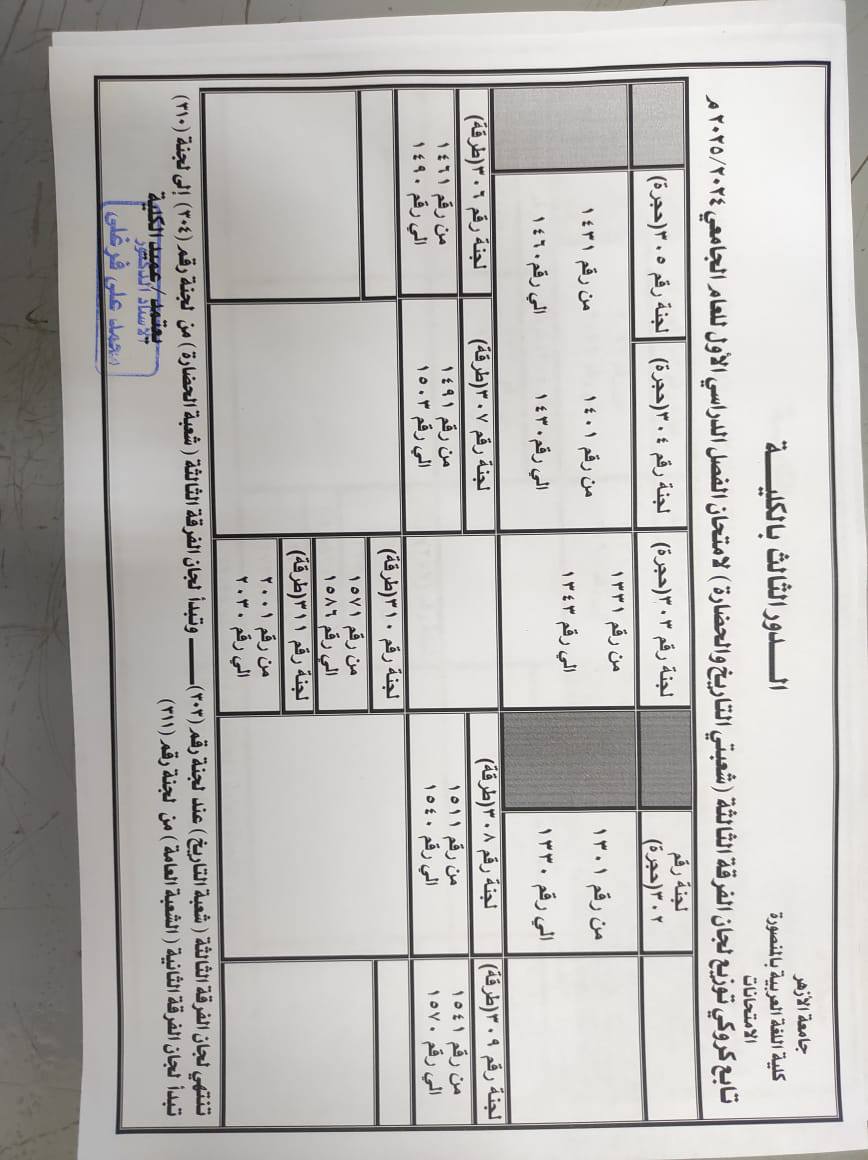 جامعة الأزهر
كلية اللغة العربية بالمنصورة
الامتحانات
الـــدور الثالث بالكليـــة
تابع كروكي توزيع لجان الفرقة الثالثة ( شعبتي التاريخ والحضارة ) لامتحان الفصل الدراسي الأول للعام الجامعي ٢٠٢٥/٢٠٢٤ م
لجنة رقم ٣٠٢(حجرة)
من رقم ١٣٠١
الي رقم ١٣٣٠
لجنة رقم ٣٠٣(حجرة)
من رقم ١٣٣١
الي رقم ١٣٤٣
لجنة رقم ٣٠٤(حجرة)
من رقم ١٤٠١
الي رقم١٤٣٠
لجنة رقم ٣٠٥(حجرة)
من رقم ١٤٣١
الي رقم ١٤٦٠
لجنة رقم ٣٠٩(طرقة)
من رقم ١٥٤١
الي رقم ١٥٧٠
لجنة رقم ٣٠٨(طرقة)
من رقم ١٥١١
الي رقم ١٥٤٠
لجنة رقم ٣٠٧(طرقة)
من رقم ١٤٩١
الي رقم ١٥٠٣
لجنة رقم ٣٠٦(طرقة)
من رقم ١٤٦١
الي رقم ١٤٩٠
لجنة رقم ٣١٠(طرقة)
من رقم ١٥٧١
الي رقم ١٥٨٦
لجنة رقم ٣١١(طرقة)
من رقم ٢٠٠١
الي رقم ٢٠٣٠
تنتهي لجان الفرقة الثالثة ( شعبة التاريخ ) عند لجنة رقم (٣٠٣) ـــــ وتبدأ لجان الفرقة الثالثة ( شعبة الحضارة ) من لجنة رقم (٣٠٤) إلى لجنة (٣١٠)
تبدأ لجان الفرقة الثانية ( الشعبة العامة ) من لجنة رقم (٣١١)
يعتمد / عميد الكلية
الأستاذ الدكتور
محمد على فرغلى